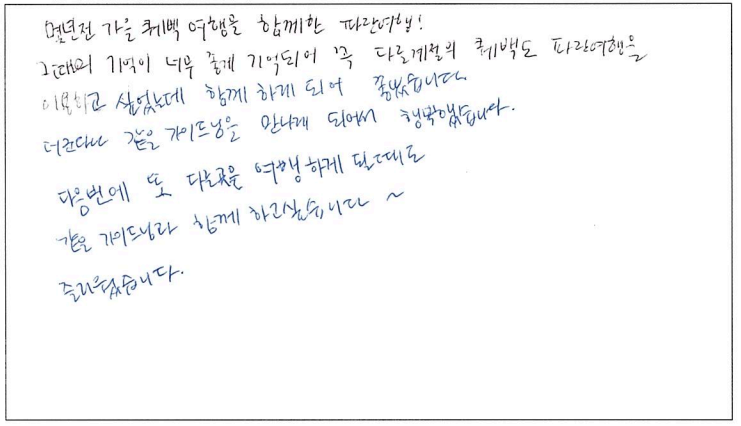 몇년전 가을 퀘벡 여행을 함께한 파란여행!
그때의 기억이 너무 좋게 기억되어 꼭 다른계절의 퀘백도 파란여행을
이용하고 싶었는데 함께 하게 되어 좋았습니다.
더군다나 같은 가이드님을 만나게 되어서 행복했습니다.
다음번에 또 다른곳을 여행하게 될때도
같은 가이드님과 함께 하고싶습니다 ~
즐거웠습니다.